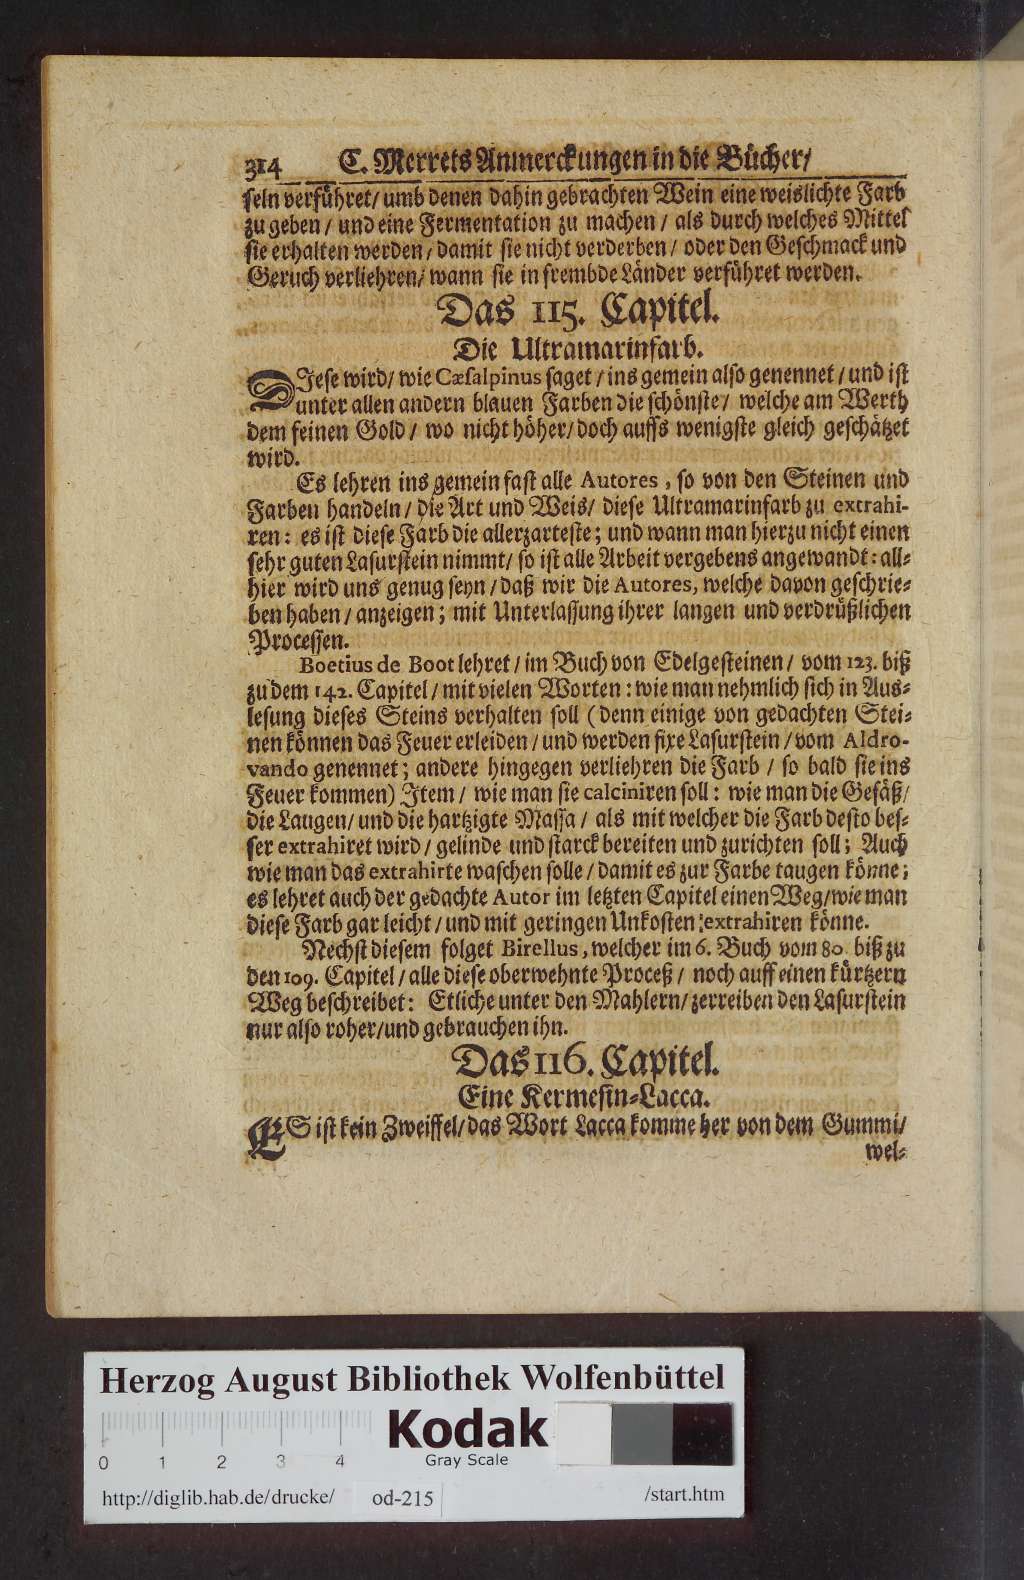 314 C. Merrets Anmerckungen in die Bücher/
seln verführet/ umb denen dahin gebrachten Wein eine weislichte Farb
zu geben / und eine Fermentation zu machen / als durch welches Mittel
sie erhalten werden / damit sie nicht verderben / oder den Geschmack und
Geruch verliehren/ wann sie in frembde Länder verführet werden.
Das 115. Capitel.
Die Ultramarinfarb.
DIese wird/ wie Cæsalpinus saget / ins gemein also genennet / und ist
unter allen andern blauen Farben die schönste/ welche am Werth
dem feinen Gold / wo nicht höher/ doch auffs wenigste gleich geschätzet
wird.
Es lehren ins gemein fast alle Autores, so von den Steinen und
Farben handeln / die Art und Weis/ diese Ultramarinfarb zu extrahi-
ren: es ist diese Farb die allerzarteste; und wann man hierzu nicht einen
sehr guten Lasurstein nimmt/ so ist alle Arbeit vergebens angewandt: all-
hier wird uns genug seyn / daß wir die Autores, welche davon geschrie-
ben haben / anzeigen; mit Unterlassung ihrer langen und verdrüßlichen
Processen.
Boetius de Boot lehret / im Buch von Edelgesteinen / vom 123. biß
zu dem 142. Capitel / mit vielen Worten: wie man nehmlich sich in Aus-
lesung dieses Steins verhalten soll (denn einige von gedachten Stei-
nen können das Feuer erleiden / und werden fixe Lasurstein / vom Aldro-
vando genennet; andere hingegen verliehren die Farb / so bald sie ins
Feuer kommen) Item / wie man sie calciniren soll: wie man die Gefäß/
die Laugen/ und die hartzigte Massa / als mit welcher die Farb desto bes-
ser extrahiret wird / gelinde und starck bereiten und zurichten soll; Auch
wie man das extrahirte waschen solle / damit es zur Farbe taugen könne;
es lehret auch der gedachte Autor im letzten Capitel einen Weg/ wie man
diese Farb gar leicht / und mit geringen Unkosten extrahiren könne.
Nechst diesem folget Birellus, welcher im 6. Buch vom 80 biß zu
den 109. Capitel / alle diese oberwehnte Proceß / noch auff einen kürtzern
Weg beschreibet: Etliche unter den Mahlern/ zerreiben den Lasurstein
nur also roher/ und gebrauchen ihn.
Das 116. Capitel.
Eine Kermesin-Lacca.
ES ist kein Zweiffel/ das Wort Lacca komme her von dem Gummi/
wel-
Herzog August Bibliothek Wolfenbüttel
Kodak
Gray Scale
0 1 2 3 4
http://diglib.hab.de/drucke/ od-215 /start.htm